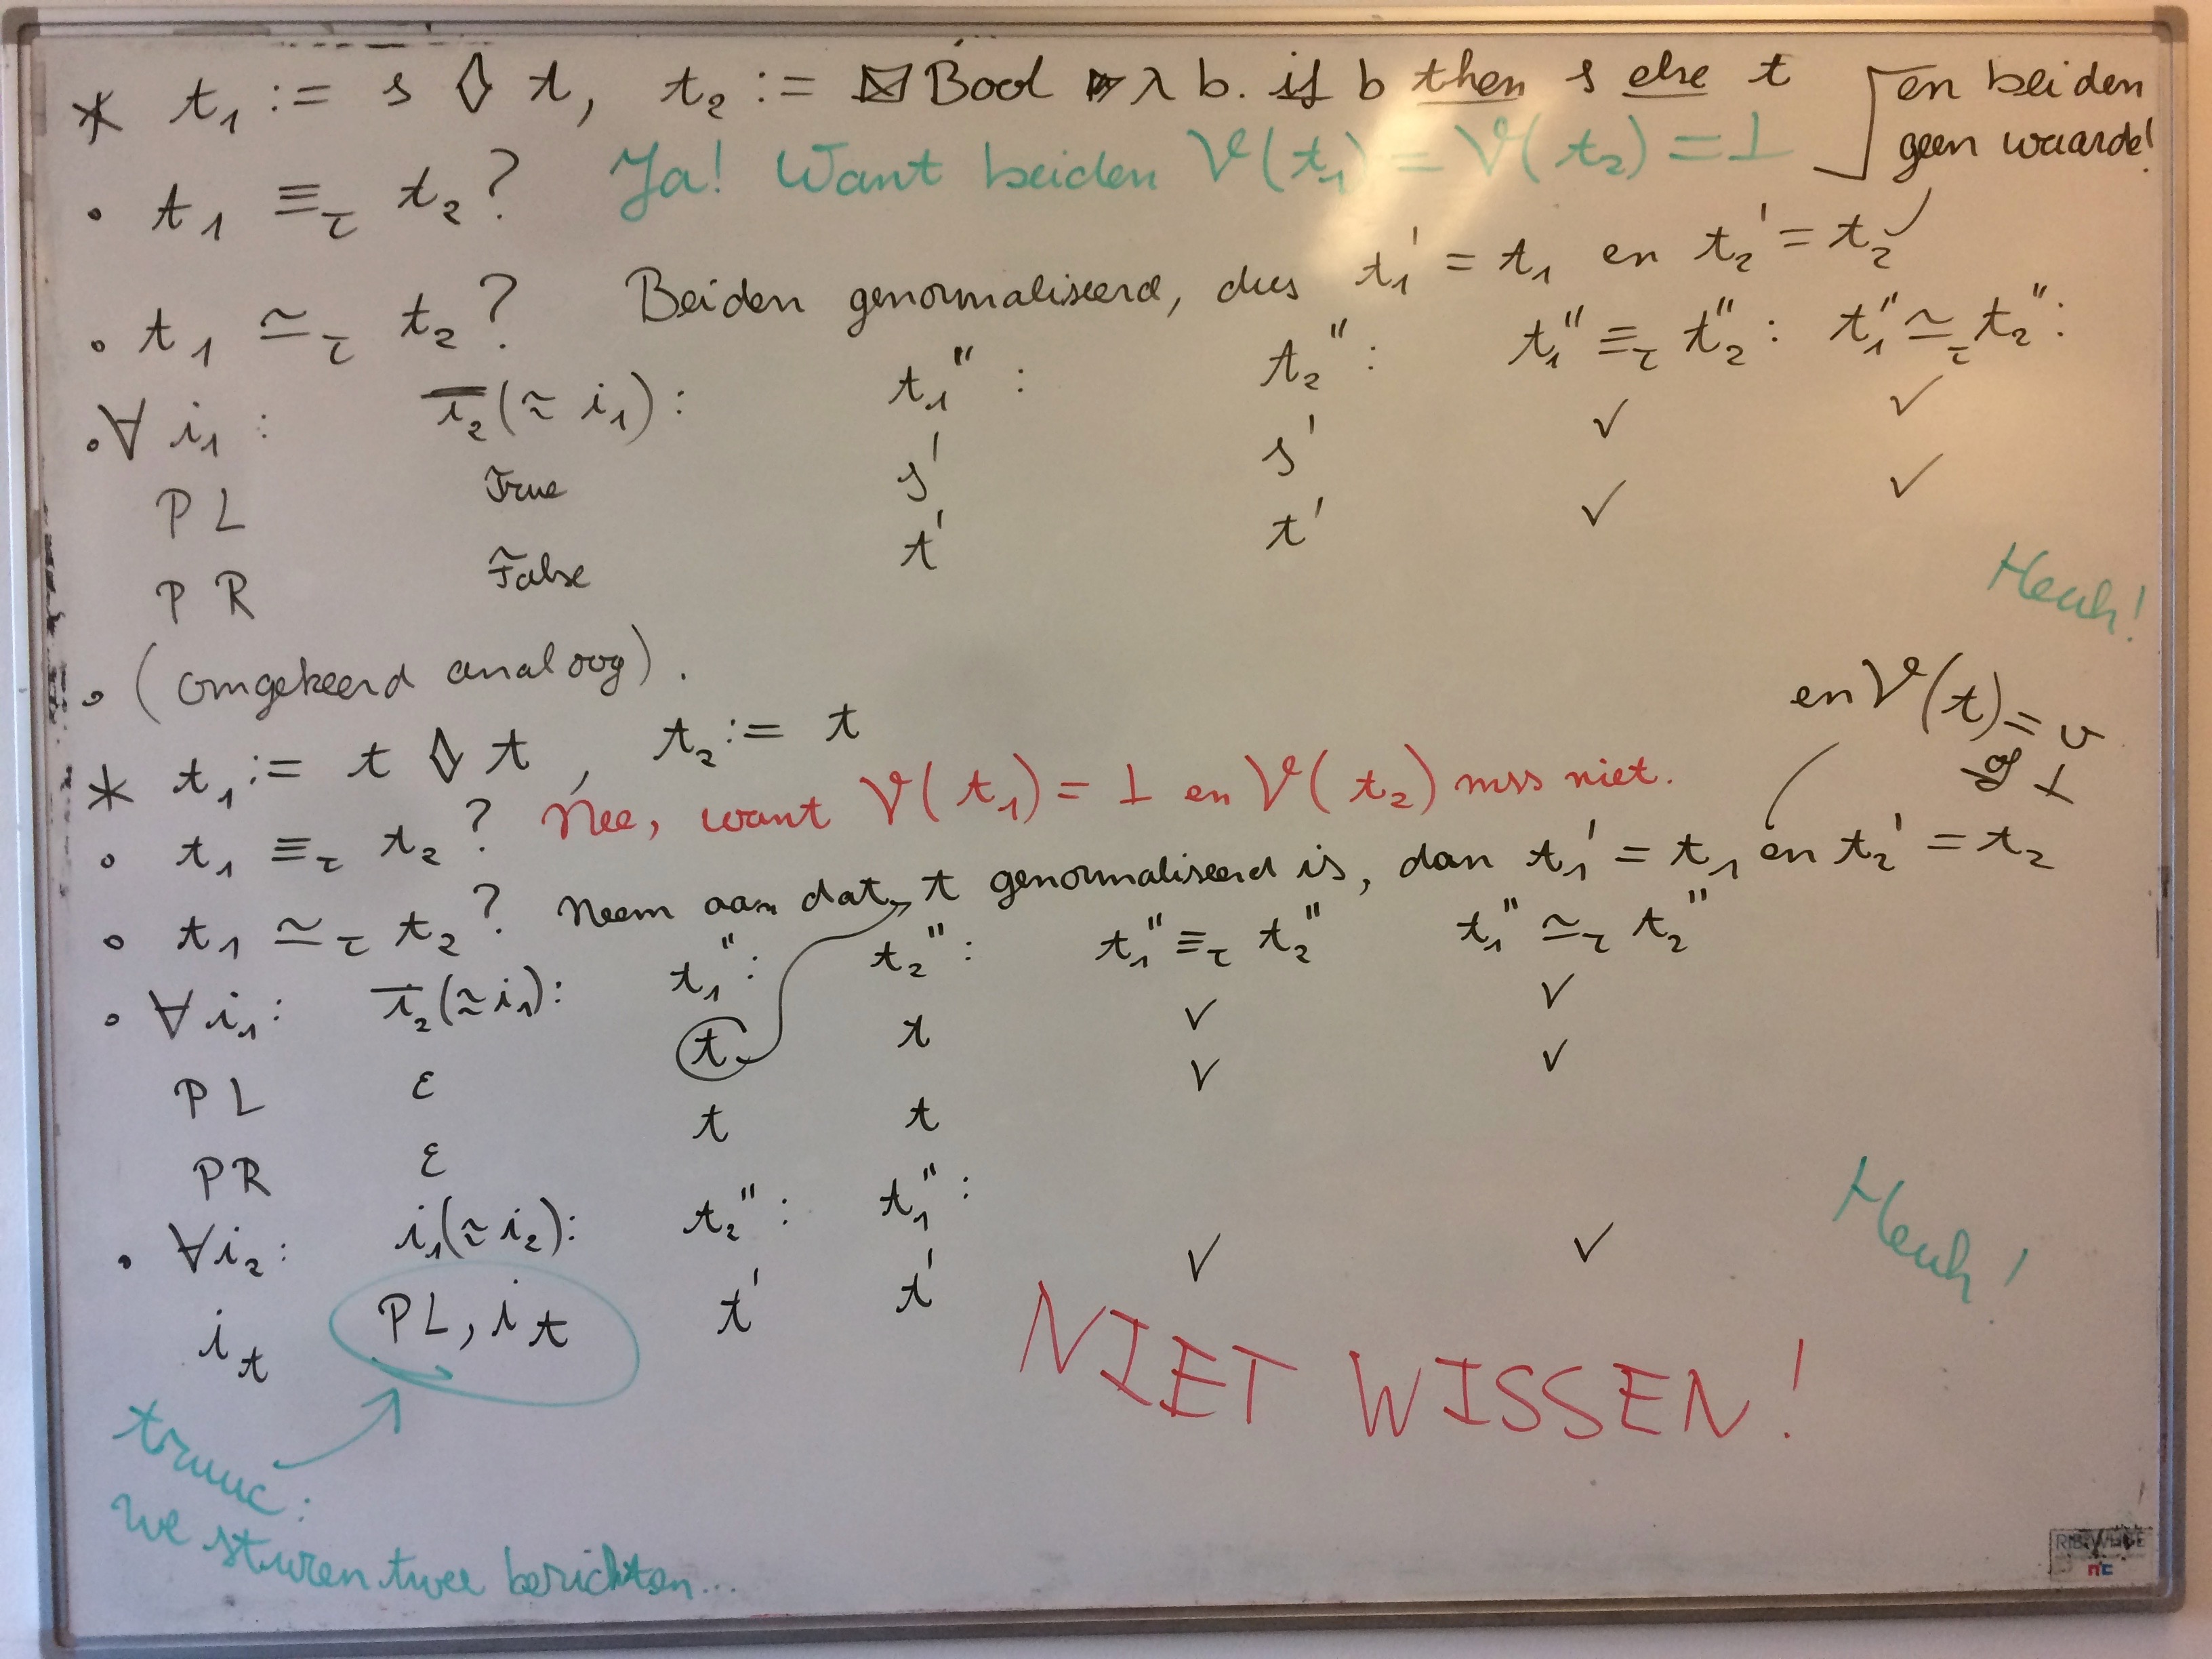 * t₁ := s ◊ t, t₂ := ⊠ Bool ▷ λ b. if b then s else t
en beiden
geen waarde!
• t₁ ≡_τ t₂? Ja! Want beiden 𝒱(t₁) = 𝒱(t₂) = ⊥
• t₁ ≃_τ t₂? Beiden genormaliseerd, dus t₁' = t₁ en t₂' = t₂
• ∀ i₁ : i̅₂(≈ i₁) : t₁'' : t₂'' : t₁'' ≡_τ t₂'' : t₁'' ≃_τ t₂'' :
P L True s' s' ✓ ✓
P R False t' t' ✓ ✓
Meuh!
• (omgekeerd analoog).
* t₁ := t ◊ t, t₂ := t
en 𝒱(t) = v
of ⊥
• t₁ ≡_τ t₂? Nee, want 𝒱(t₁) = ⊥ en 𝒱(t₂) mss niet.
• t₁ ≃_τ t₂? Neem aan dat t genormaliseerd is, dan t₁' = t₁ en t₂' = t₂
• ∀ i₁ : i̅₂(≈ i₁) : t₁'' : t₂'' : t₁'' ≡_τ t₂'' t₁'' ≃_τ t₂''
P L ε t t ✓ ✓
P R ε t t ✓ ✓
• ∀ i₂ : i₁(≈ i₂) : t₂'' : t₁'' :
i_t PL, i_t t' t' ✓ ✓
Meuh!
NIET WISSEN!
truuc:
we sturen twee berichten...